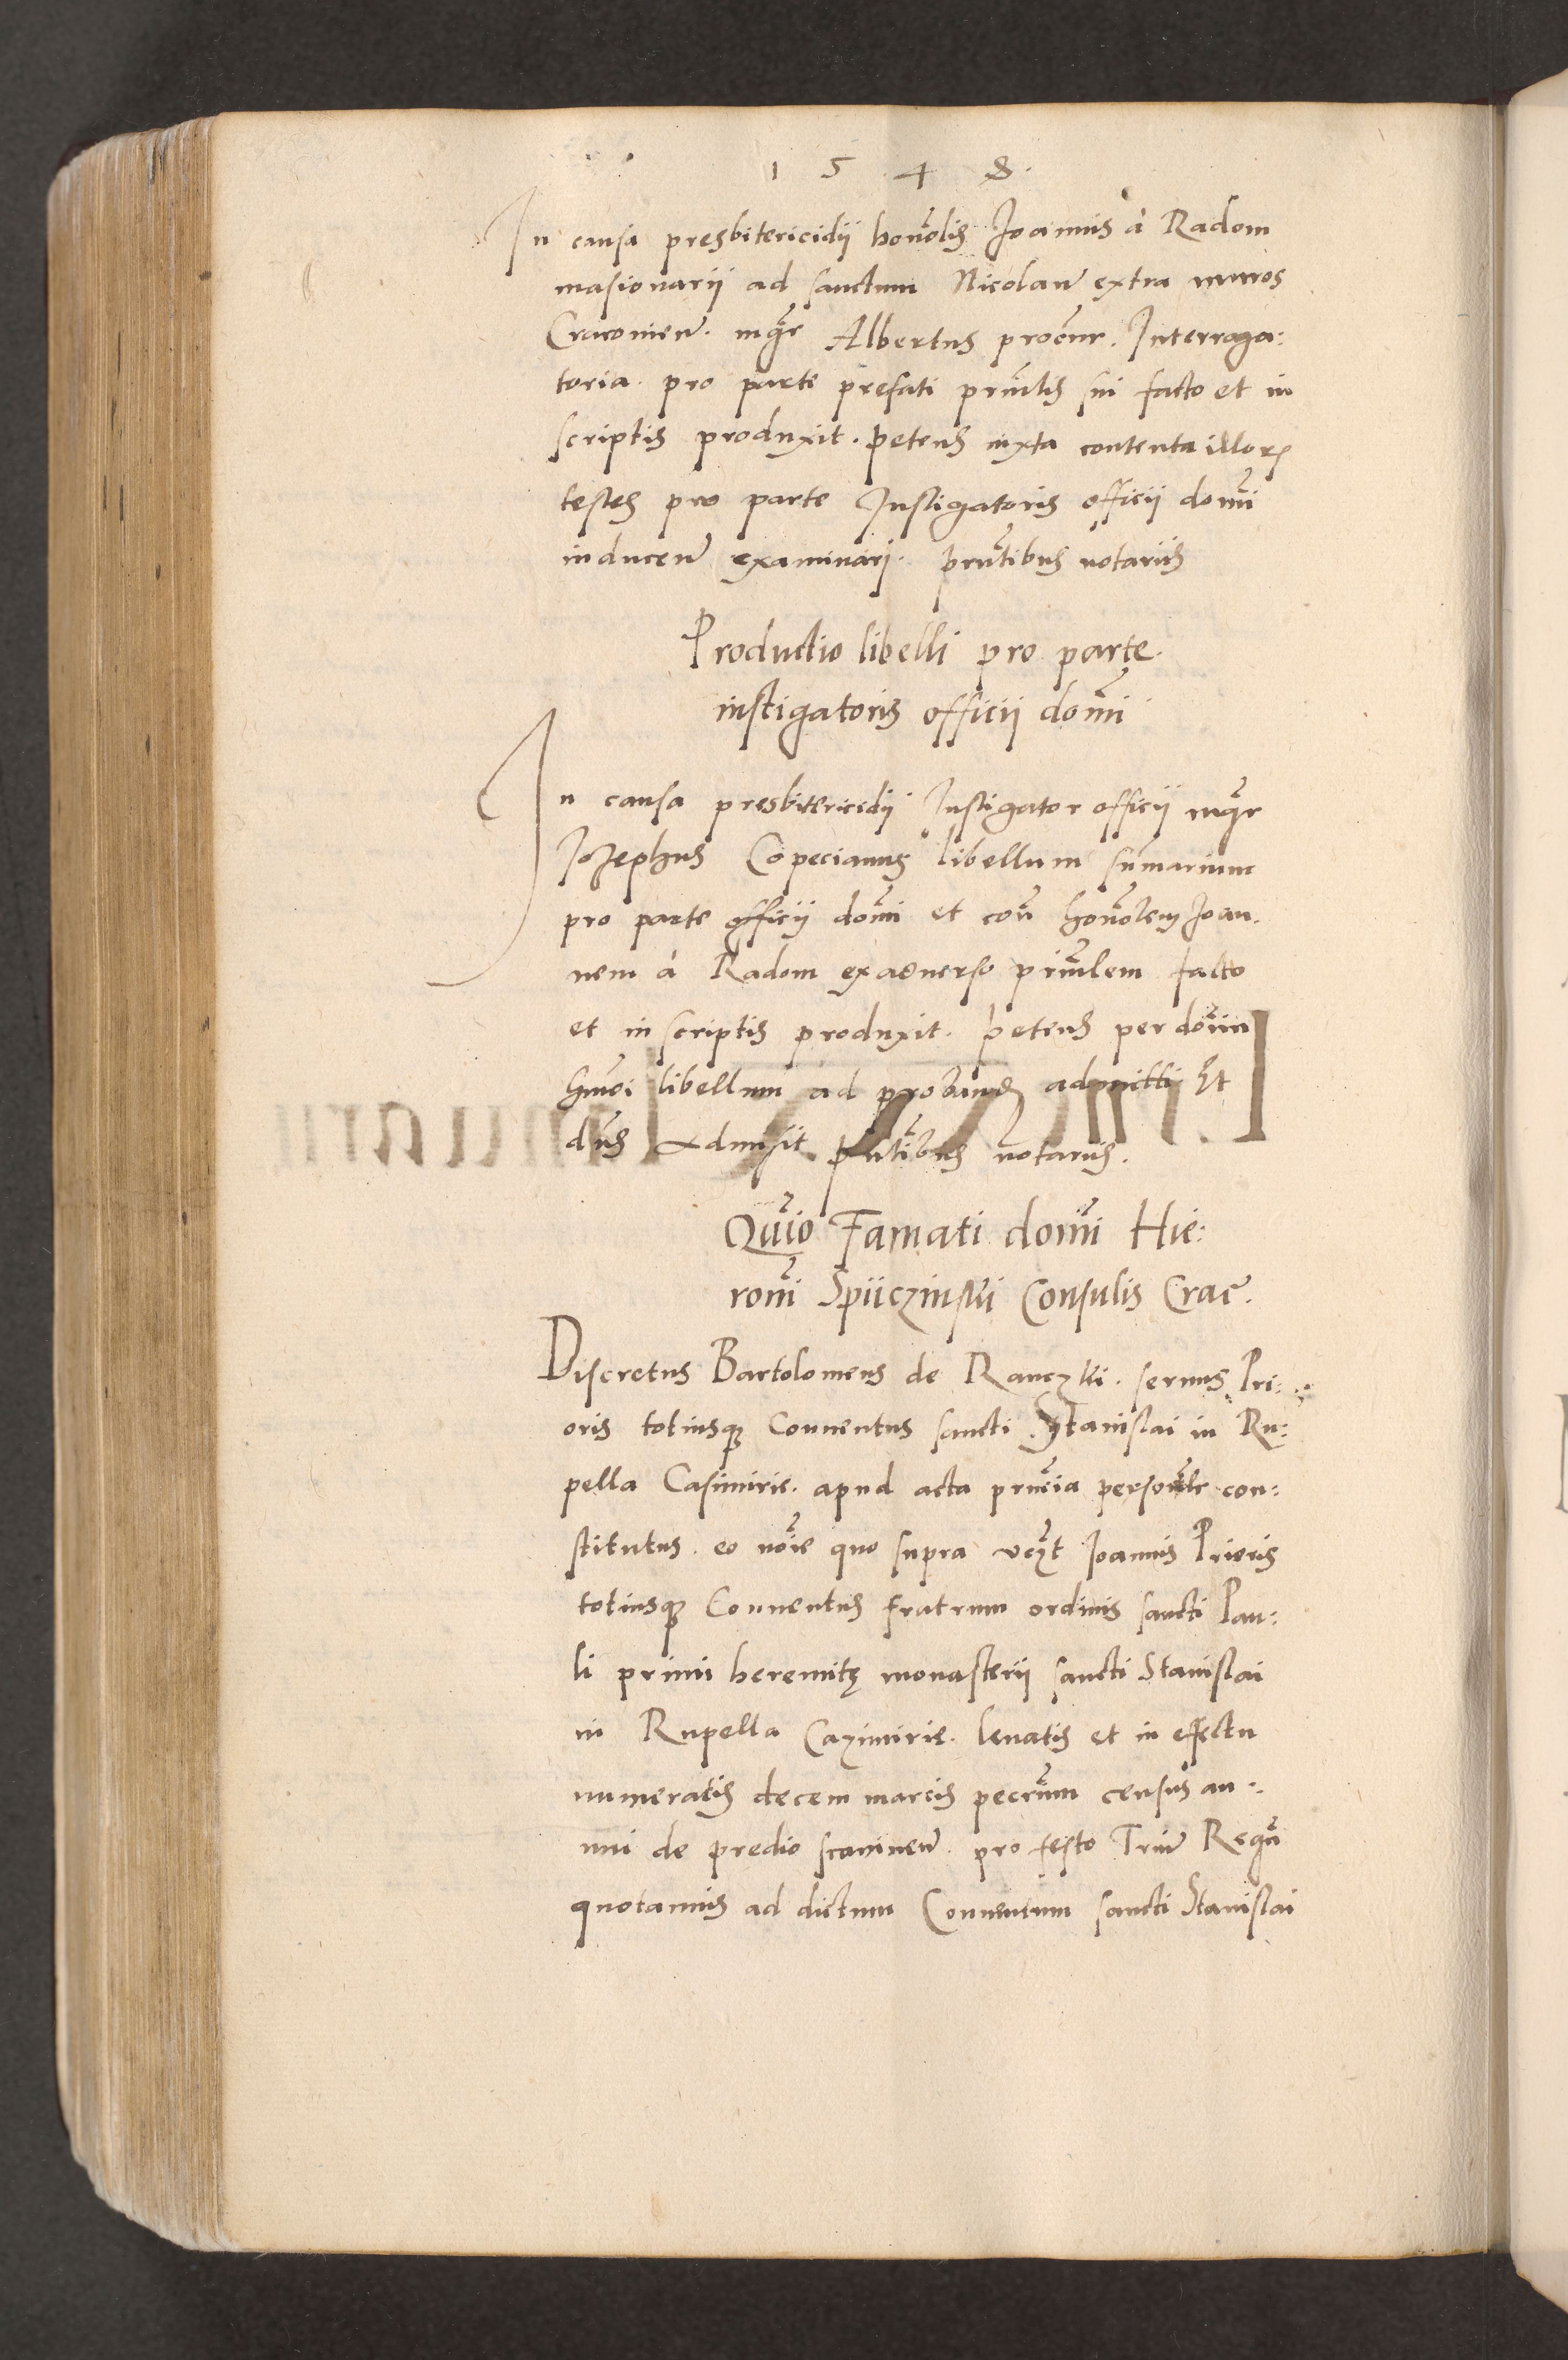 1 5 4 8.
In causa presbitericidii honolis Joannis à Radom
masionarii ad sanctum Nicolau extra muros
Cracovien. mgr Albertus procur. Interroga:
toria pro parte prefati prinlis sui facto et in
scriptis produxit. petens iuxta contenta illor
testes pro parte Instigatoris officii domi
inducen examinari. pntibus notariis
Productio libelli pro parte
instigatoris officii domi
In causa presbitericidii Instigator officii mgr
Jozephus Copecianus libellum summarium
pro parte officii domi et con honolem Joan.
nem à Radom exadverso prinlem facto
et in scriptis produxit. petens per domin
hmoi libellum ad proband admitti Et
dns admisit pntibus notariis.
Quio Famati domi Hie:
roni Spiiczinskii Consulis Crac.
Discretus Bartolomeus de Ranczki. servus Pri:
oris totiusq Conventus sancti Stanislai in Ru:
pella Casimirie. apud acta pncia personlr con:
stitutus. eo noie quo supra vczt Joannis Prioris
totiusq Conventus fratrum ordinis sancti Pau:
li primi heremitę monasterii sancti Stanislai
in Rupella Cazimirie. levatis et in effectu
numeratis decem marcis pecrum census an:
nui de predio scavinen pro festo Triu Regu
quotannis ad dictum Conventum sancti Stanislai